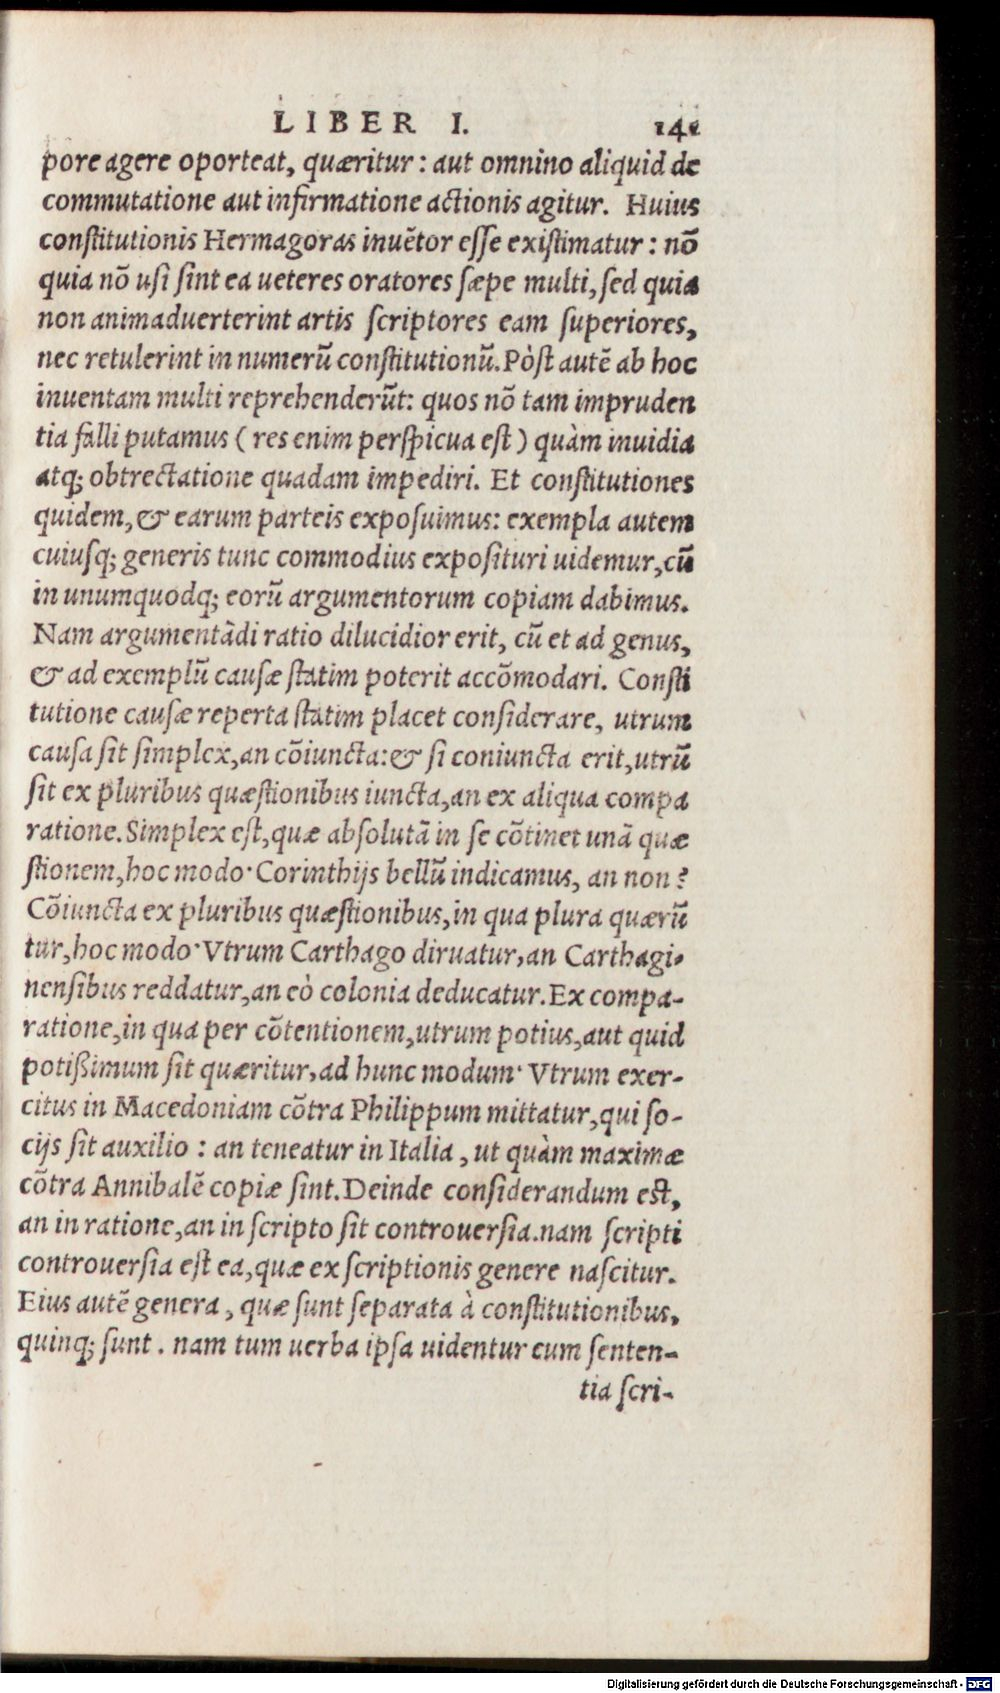 LIBER I. 141
pore agere oporteat, quæritur: aut omnino aliquid de
commutatione aut infirmatione actionis agitur. Huius
constitutionis Hermagoras inuētor esse existimatur: nō
quia nō usi sint ea ueteres oratores sæpe multi, sed quia
non animaduerterint artis scriptores eam superiores,
nec retulerint in numerū constitutionū. Pòst autē ab hoc
inuentam multi reprehenderūt: quos nō tam impruden
tia falli putamus (res enim perspicua est) quàm inuidia
atq; obtrectatione quadam impediri. Et constitutiones
quidem, & earum parteis exposuimus: exempla autem
cuiusq; generis tunc commodius exposituri uidemur, cū
in unumquodq; eorū argumentorum copiam dabimus.
Nam argumentādi ratio dilucidior erit, cū et ad genus,
& ad exemplū causæ statim poterit accōmodari. Consti
tutione causæ reperta statim placet considerare, utrum
causa sit simplex, an cōiuncta: & si coniuncta erit, utrū
sit ex pluribus quæstionibus iuncta, an ex aliqua compa
ratione. Simplex est, quæ absolutā in se cōtinet unā quæ
stionem, hoc modo· Corinthijs bellū indicamus, an non?
Cōiuncta ex pluribus quæstionibus, in qua plura quærū
tur, hoc modo· Vtrum Carthago diruatur, an Carthagi-
nensibus reddatur, an eò colonia deducatur. Ex compa-
ratione, in qua per cōtentionem, utrum potius, aut quid
potißimum sit quæritur, ad hunc modum· Vtrum exer-
citus in Macedoniam cōtra Philippum mittatur, qui so-
cijs sit auxilio: an teneatur in Italia, ut quàm maximæ
cōtra Annibalē copiæ sint. Deinde considerandum est,
an in ratione, an in scripto sit controuersia. nam scripti
controuersia est ea, quæ ex scriptionis genere nascitur.
Eius autē genera, quæ sunt separata à constitutionibus,
quinq; sunt. nam tum uerba ipsa uidentur cum senten-
tia scri-
Digitalisierung gefördert durch die Deutsche Forschungsgemeinschaft - DFG